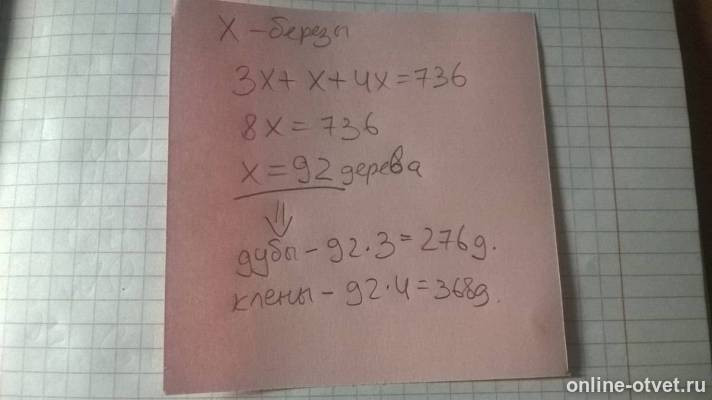 X - березы
3x + x + 4x = 736
8x = 736
x = 92 дерева
дубы - 92·3 = 276д.
клены - 92·4 = 368д.
online-otvet.ru